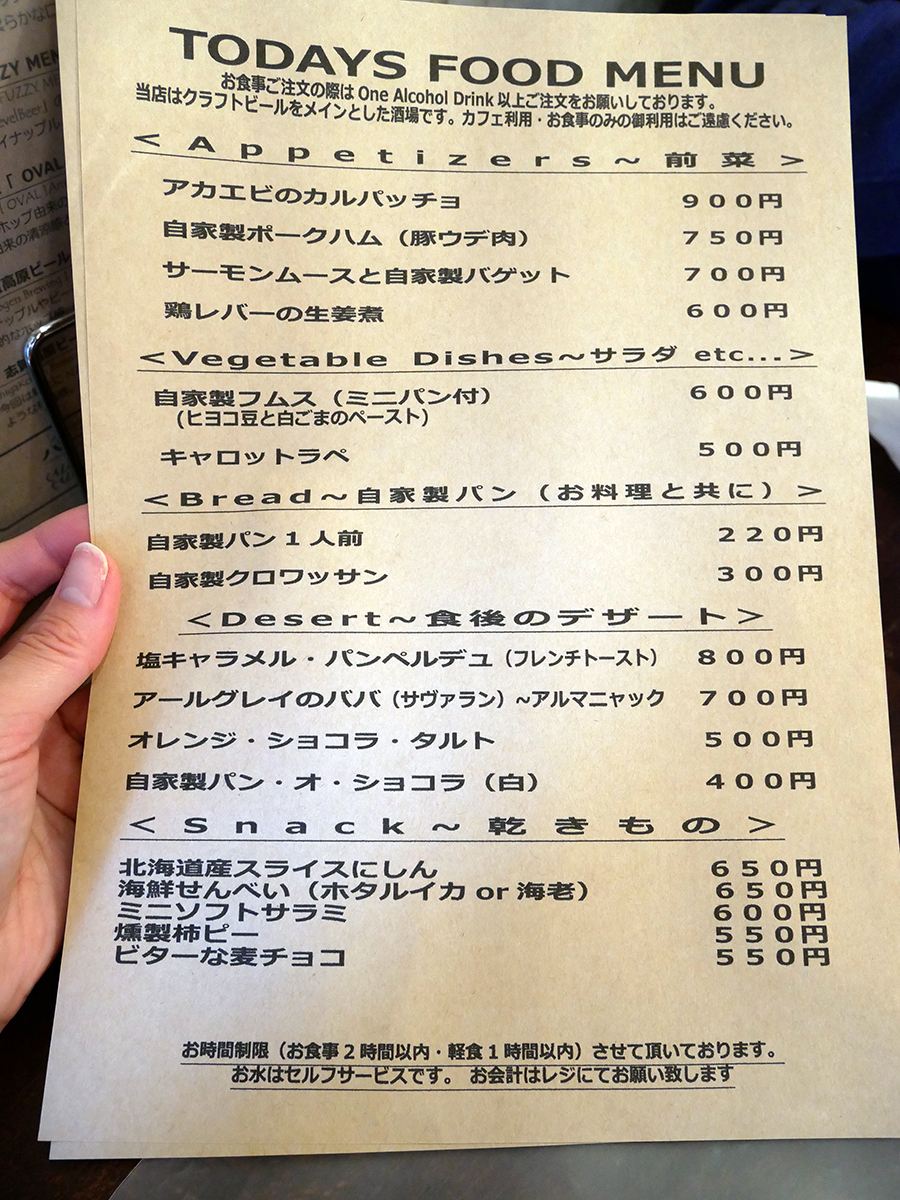 TODAYS FOOD MENU
お食事ご注文の際は One Alcohol Drink 以上ご注文をお願いしております。
当店はクラフトビールをメインとした酒場です。カフェ利用・お食事のみの御利用はご遠慮ください。
＜Appetizers～前菜＞
アカエビのカルパッチョ 900円
自家製ポークハム（豚ウデ肉） 750円
サーモンムースと自家製バゲット 700円
鶏レバーの生姜煮 600円
＜Vegetable Dishes～サラダ etc...＞
自家製フムス（ミニパン付） 600円
(ヒヨコ豆と白ごまのペースト)
キャロットラペ 500円
＜Bread～自家製パン（お料理と共に）＞
自家製パン１人前 220円
自家製クロワッサン 300円
＜Desert～食後のデザート＞
塩キャラメル・パンペルデュ（フレンチトースト） 800円
アールグレイのババ（サヴァラン）~アルマニャック 700円
オレンジ・ショコラ・タルト 500円
自家製パン・オ・ショコラ（白） 400円
＜Snack～乾きもの＞
北海道産スライスにしん 650円
海鮮せんべい（ホタルイカ or 海老） 650円
ミニソフトサラミ 600円
燻製柿ピー 550円
ビターな麦チョコ 550円
お時間制限（お食事２時間以内・軽食１時間以内）させて頂いております。
お水はセルフサービスです。 お会計はレジにてお願い致します
ZY MEN
FUZZY M
evelBeer
イナップル
「OVAL
OVAL
ホップ由来の
由来の清涼感
高原ビール
ogen Brewing
ップルやピ
志